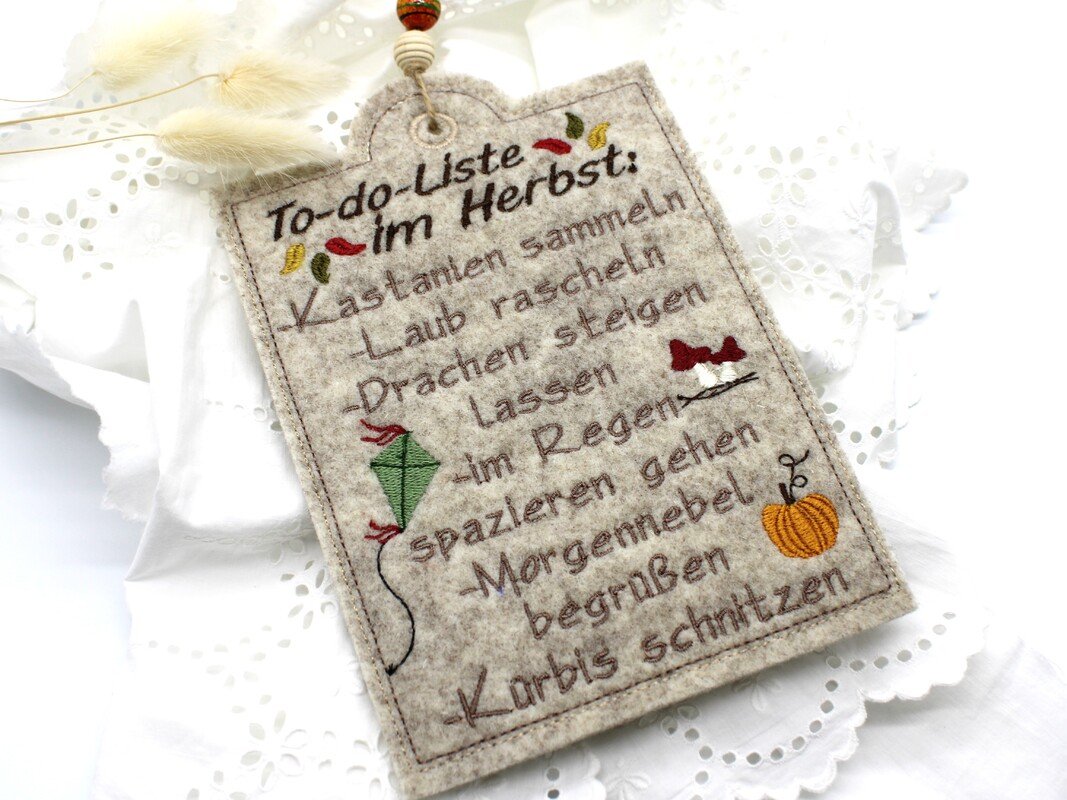 To-do-Liste
im Herbst:
-Kastanien sammeln
-Laub rascheln
-Drachen steigen
lassen
-im Regen
spazieren gehen
-Morgennebel
begrüßen
-Kürbis schnitzen